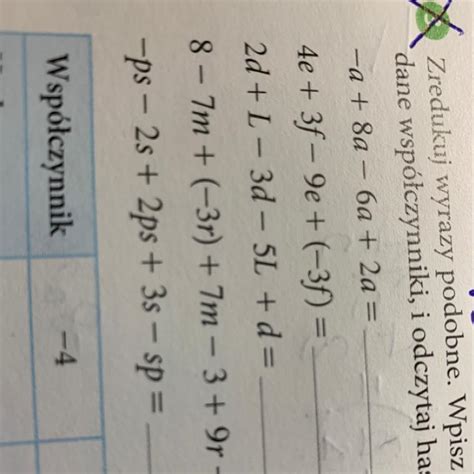 Zredukuj wyrazy podobne. Wpisz
dane współczynniki, i odczytaj
-a + 8a - 6a + 2a =
4e + 3f - 9e + (-3f) =
2d + L - 3d - 5L + d =
8 - 7m + (-3r) + 7m - 3 + 9r -
-ps - 2s + 2ps + 3s - sp =
Współczynnik -4